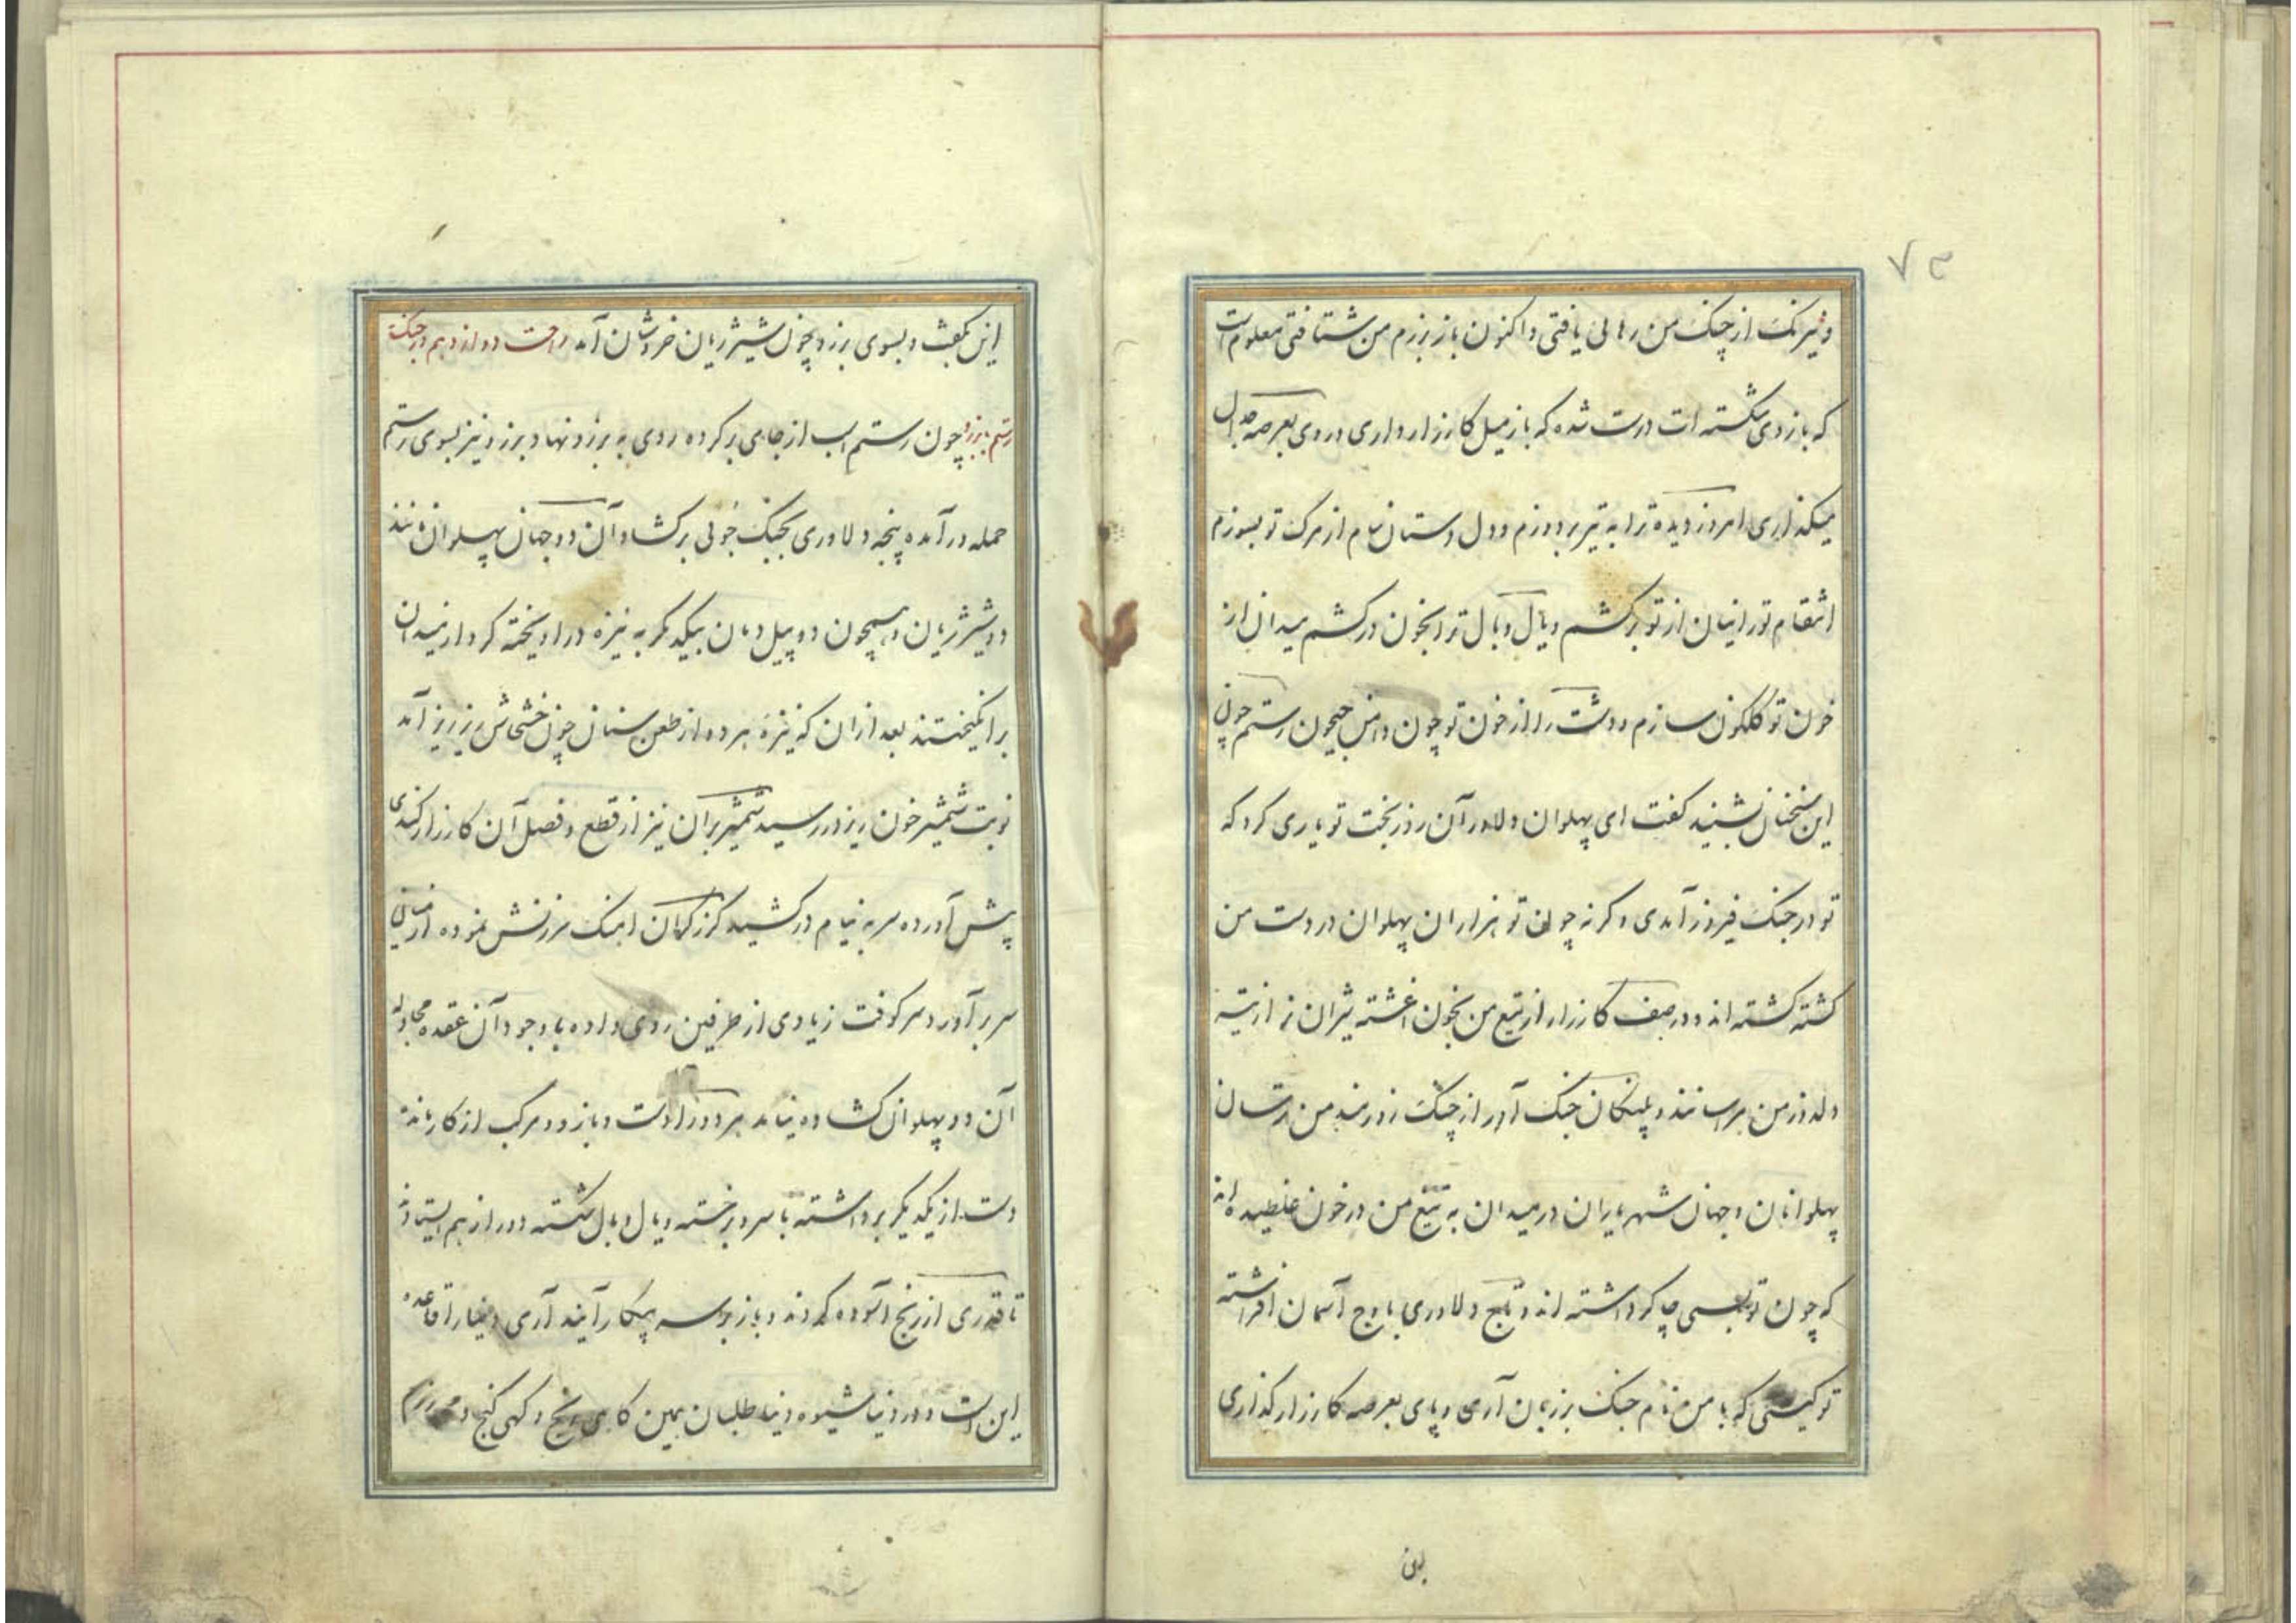 ۷۳
و نیرنک از چنک من رهائی یافتی و اکنون باز برزم من شتافتی معلوم است
که بازوی شکسته ات درست شده که باز میل کارزار داری و روی بعرصه جدال
میکذاری امروز دیده ترا به تیر بدوزم و دل دستان سام از مرک تو بسوزم
انتقام تورانیان از تو برکشم و یال و بال ترا بخون درکشم میدان از
خون تو کلکون سازم و دشت را از خون تو چون دامن جیحون رستم چون
این سخنان بشنید کفت ای پهلوان دلاور آن روز بخت تو یاری کرد که
تو در جنک فیروز آمدی وکرنه چون تو هزاران پهلوان در دست من
کشته کشته اند و در صف کارزار از تیغ من بخون اغشته شیران نر از تیشه
دلدوز من هراسانند و پلنکان جنک آور از چنک زورمند من ترسان
پهلوانان و جهان شهریاران در میدان به تیغ من در خون غلطیده اند
که چون تو بسی چاکر داشته اند و تاج دلاوری باوج آسمان افراشته
تو کیستی که با من نام جنک بر زبان آری و پای بعرصه کارزار کذاری
این
این بکفت و بسوی برزو چون شیر ژیان خروشان آمد راحت دوازدهم در جنک
رستم با برزو چون رستم اسب از جای برکرده روی به برزو نهاد برزو نیز بسوی رستم
حمله در آمده پنجه دلاوری بجنک جوئی برکشاد آن دو جهان پهلوان مانند
دو شیر ژیان و همچون دو پیل دمان بیکدیکر به نیزه در اویخته کرد از میدان
برانکیختند بعد از ان که نیزه هر دو از طعن سنان چون خشخاش ریز ریز آمد
نوبت شمشیر خون ریز در رسید شمشیر بران نیز از قطع و فصل آن کارزار کندی
پیش آورده سر به نیام درکشید کرز کران اهنک سرزنش نموده از میان
سر بر آورد سرکوفت زیادی از طرفین روی داده با وجود آن عقده مجادله
آن دو پهلوان کشاده نیامد هر دو را دست و بازو و مرکب از کار مانده
دست از یکدیکر برداشته با سر و بر خسته و یال و بال شکسته دور از هم ایستادند
تا قدری از رنج آسوده کردند و باز بر سر پیکار آیند آری دنیا را قاعده
این است و در دنیا شیوه دنیا طلبان همین کاهی رنج و کهی کنج و